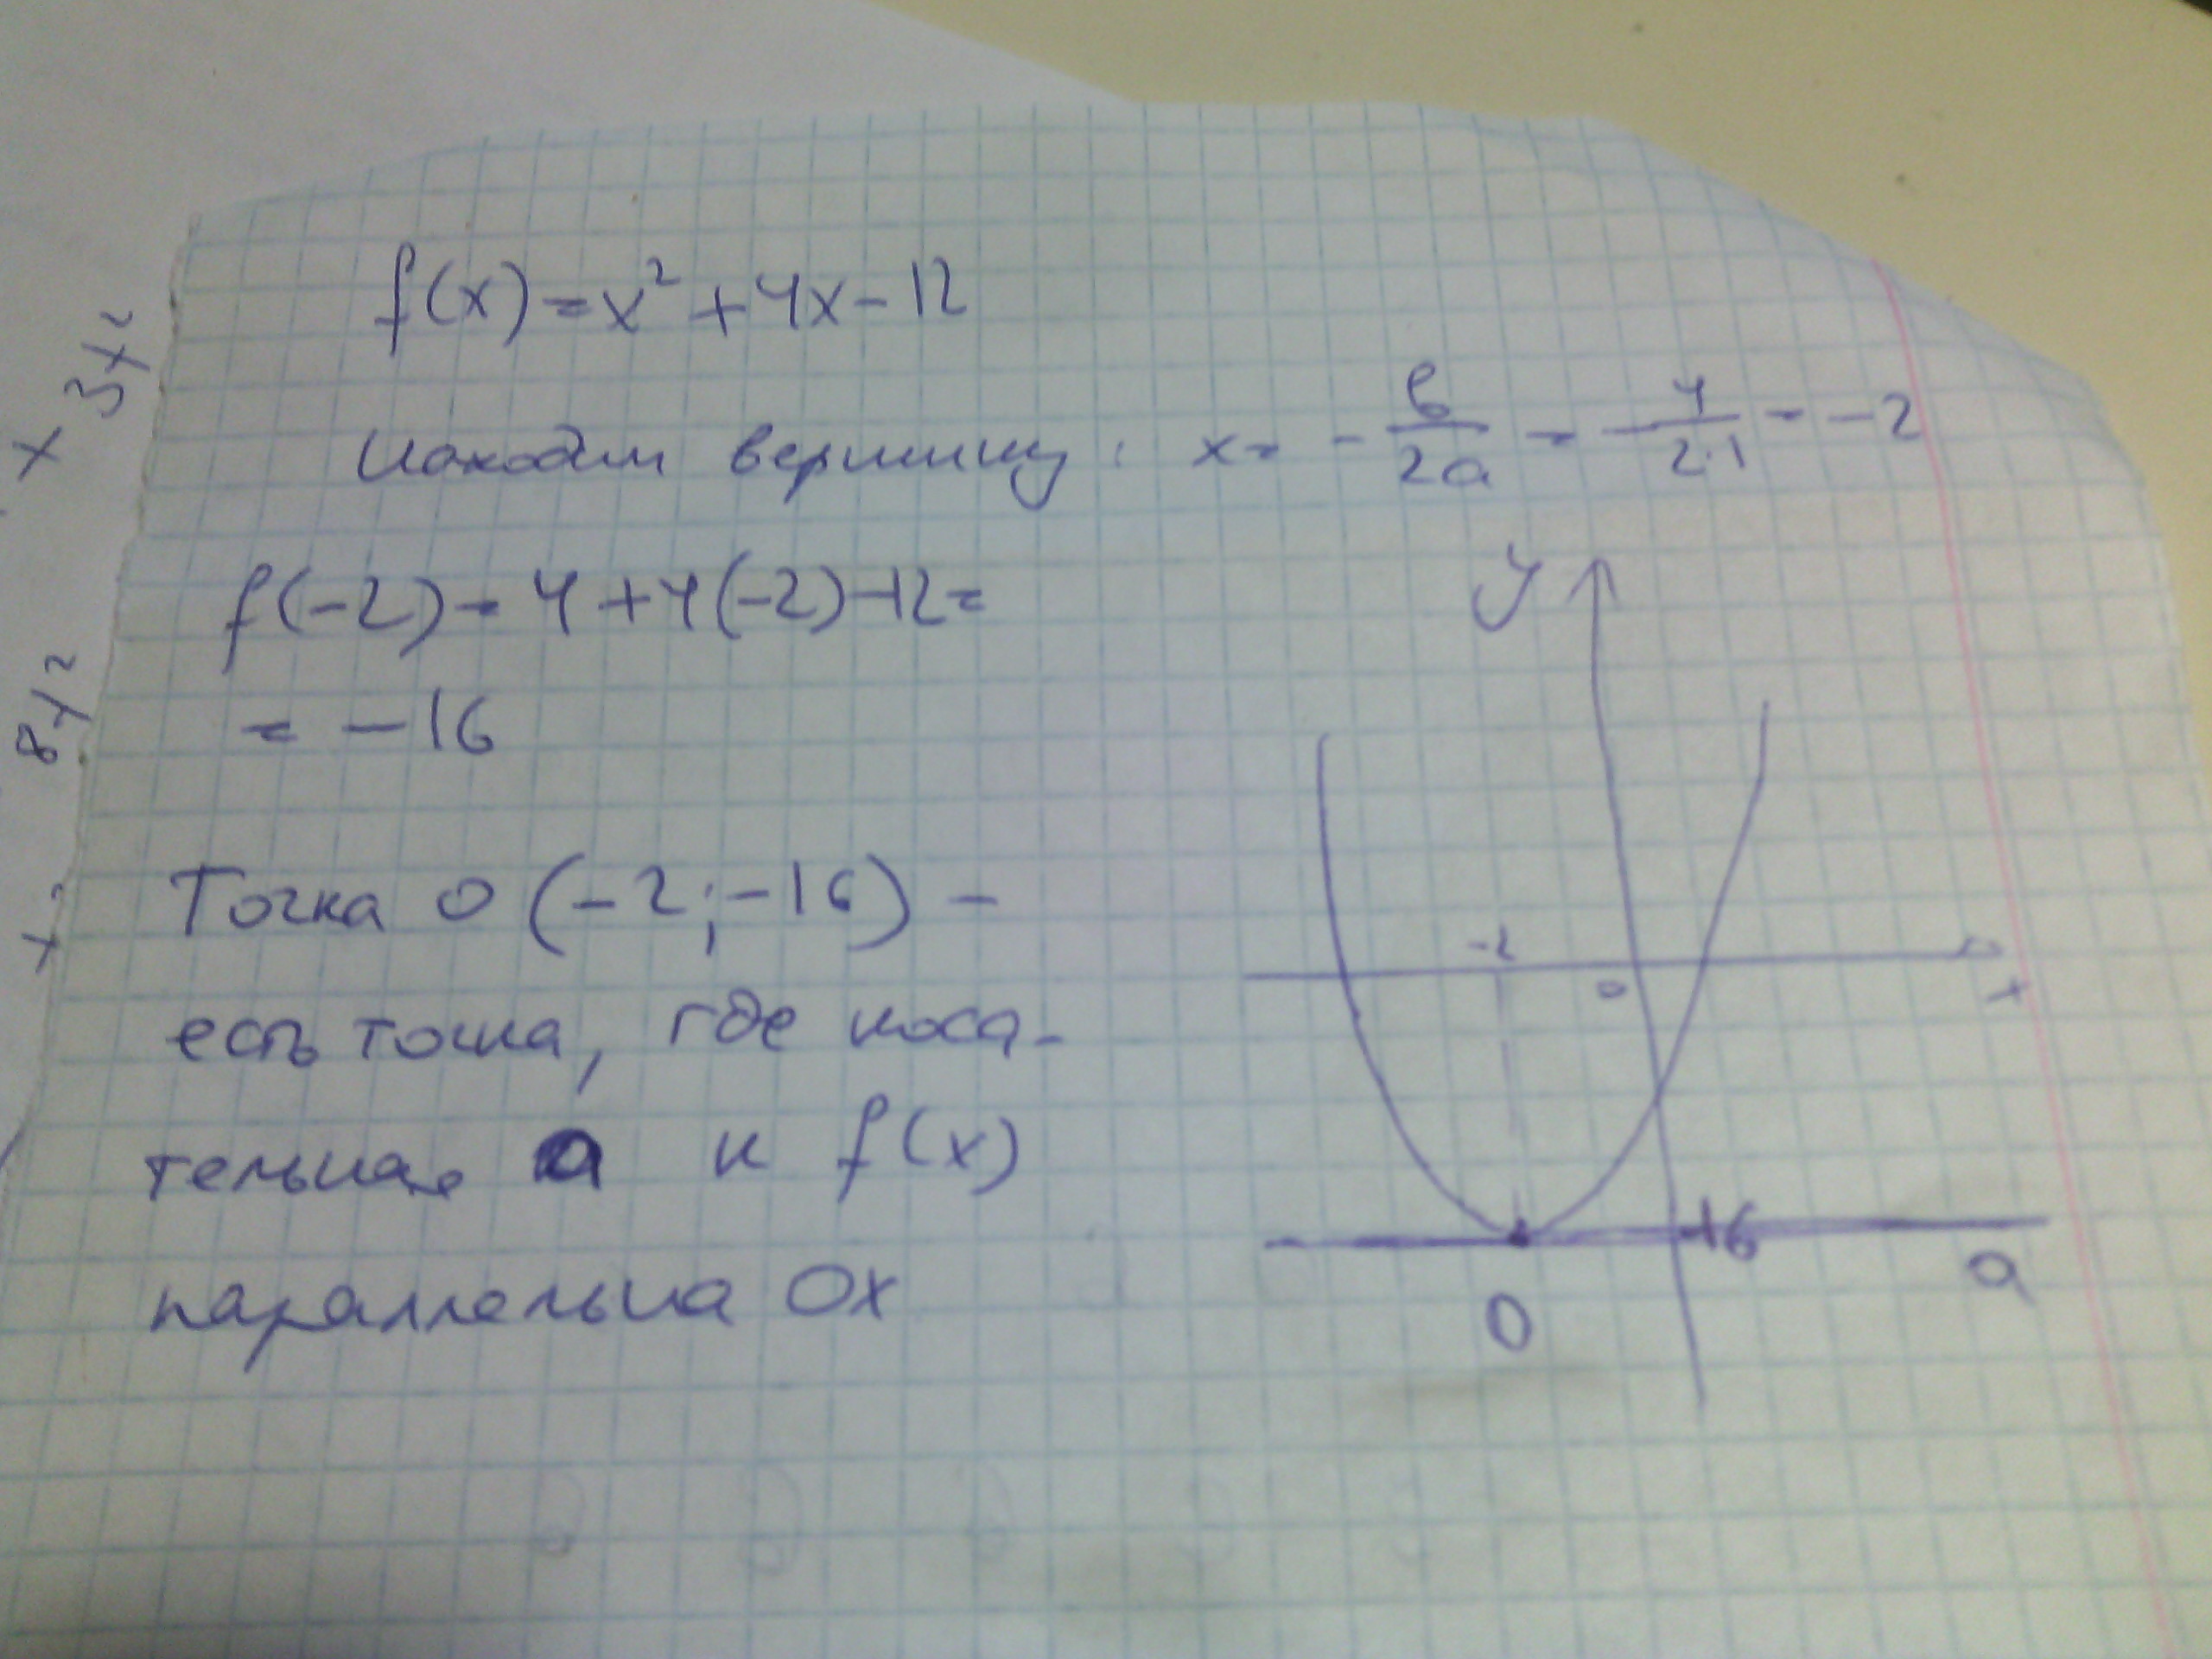 f(x) = x² + 4x - 12
Находим вершину: x = - в/2a = - 4/2·1 = -2
f(-2) = 4 + 4(-2) - 12 =
= -16
Точка О (-2; -16) -
есть точка, где каса-
тельная a к f(x)
параллельна Ox
y
-2
0
x
-16
a
О
3y²
x
8y²